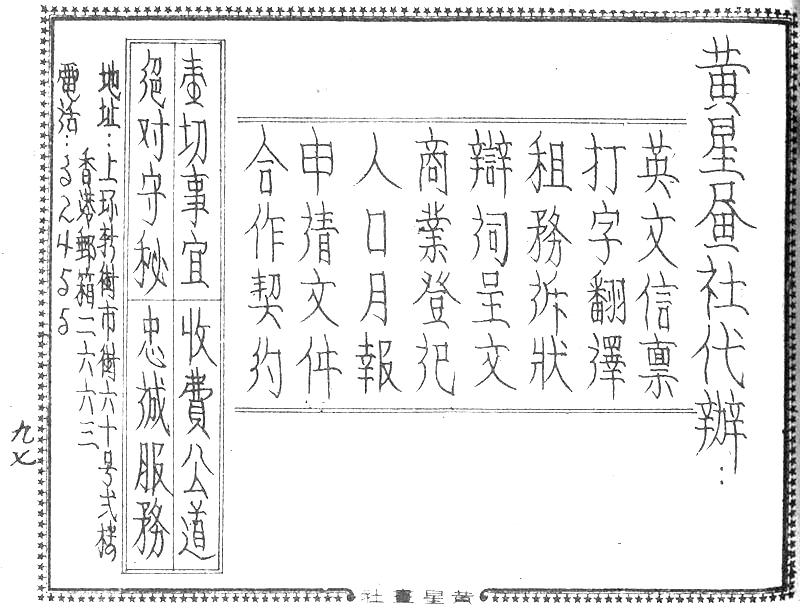 黃星画社代辦：
英文信禀
打字翻譯
租務訴狀
辯词呈文
商業登記
人口月報
申請文件
合作契约
壹切事宜 收費公道
絕对守秘 忠诚服務
地址：上环新街市街六十号弍楼
香港郵箱二六六三
電话：
九七
黃星畫社